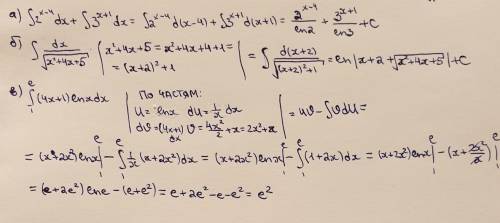 а) ∫2^(x-4)dx + ∫3^(x+1)dx = ∫2^(x-4)d(x-4) + ∫3^(x+1)d(x+1) = 2^(x-4)/ln2 + 3^(x+1)/ln3 + C
б) ∫ dx/√(x²+4x+5) | x²+4x+5 = x²+4x+4+1 = = (x+2)²+1 | = ∫ d(x+2)/√((x+2)²+1) = ln|x+2+√(x²+4x+5)|+C
в) ∫₁ᵉ (4x+1)lnxdx | ПО ЧАСТЯМ: U = lnx dU = 1/x dx dV = (4x+1)dx V = 4x²/2 + x = 2x²+x | = UV - ∫VdU =
= (x+2x²)lnx|₁ᵉ - ∫₁ᵉ 1/x (x+2x²)dx = (x+2x²)lnx|₁ᵉ - ∫₁ᵉ (1+2x)dx = (x+2x²)lnx|₁ᵉ - (x+2x²/2)|₁ᵉ
= (e+2e²)lne - (e+e²) = e+2e²-e-e² = e²